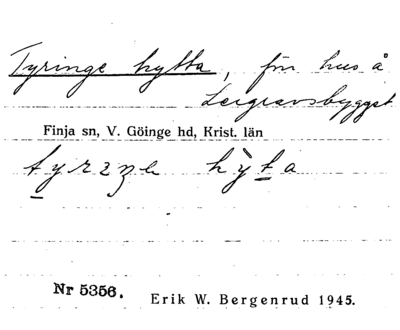 Tyringe hytta, för hus å
Lergravsbygget
Finja sn, V. Göinge hd, Krist. län
hỳta
Nr 5356.
Erik W. Bergenrud 1945.